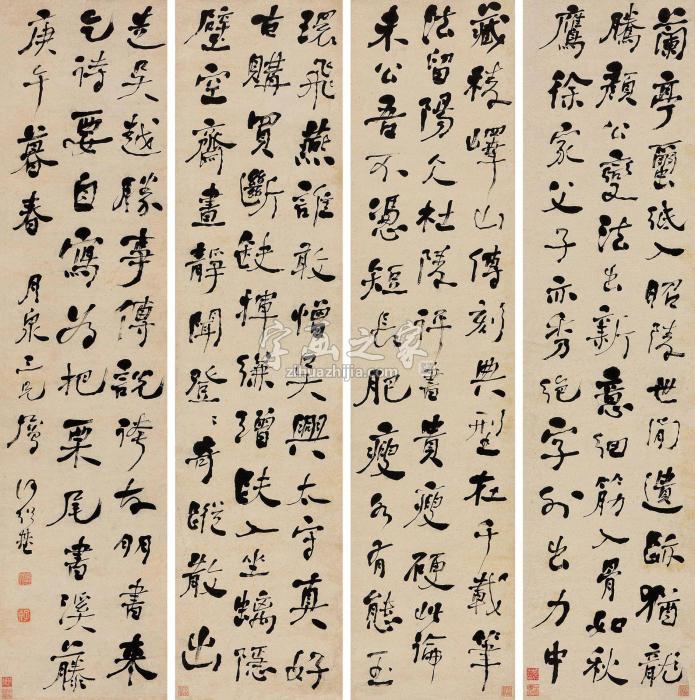 蘭亭蠒紙入昭陵世間遺跡猶龍
騰顏公變法出新意細筋入骨如秋
鷹徐家父子亦秀絕字外出力中
藏稜嶧山傳刻典型在千載筆
法留陽仌杜陵評書貴瘦硬此論
未公吾不憑短長肥瘦各有態玉
環飛燕誰敢憎吳興太守真好
古購買斷缺揮縑繒趺入坐螭隱
壁空齋晝靜聞登登奇蹤散出
走吳越勝事傳說誇友朋書來
乞詩要自寫為把栗尾書溪藤
庚午暮春 月泉三兄屬 何紹基
字画之家
zihuazhijia.com